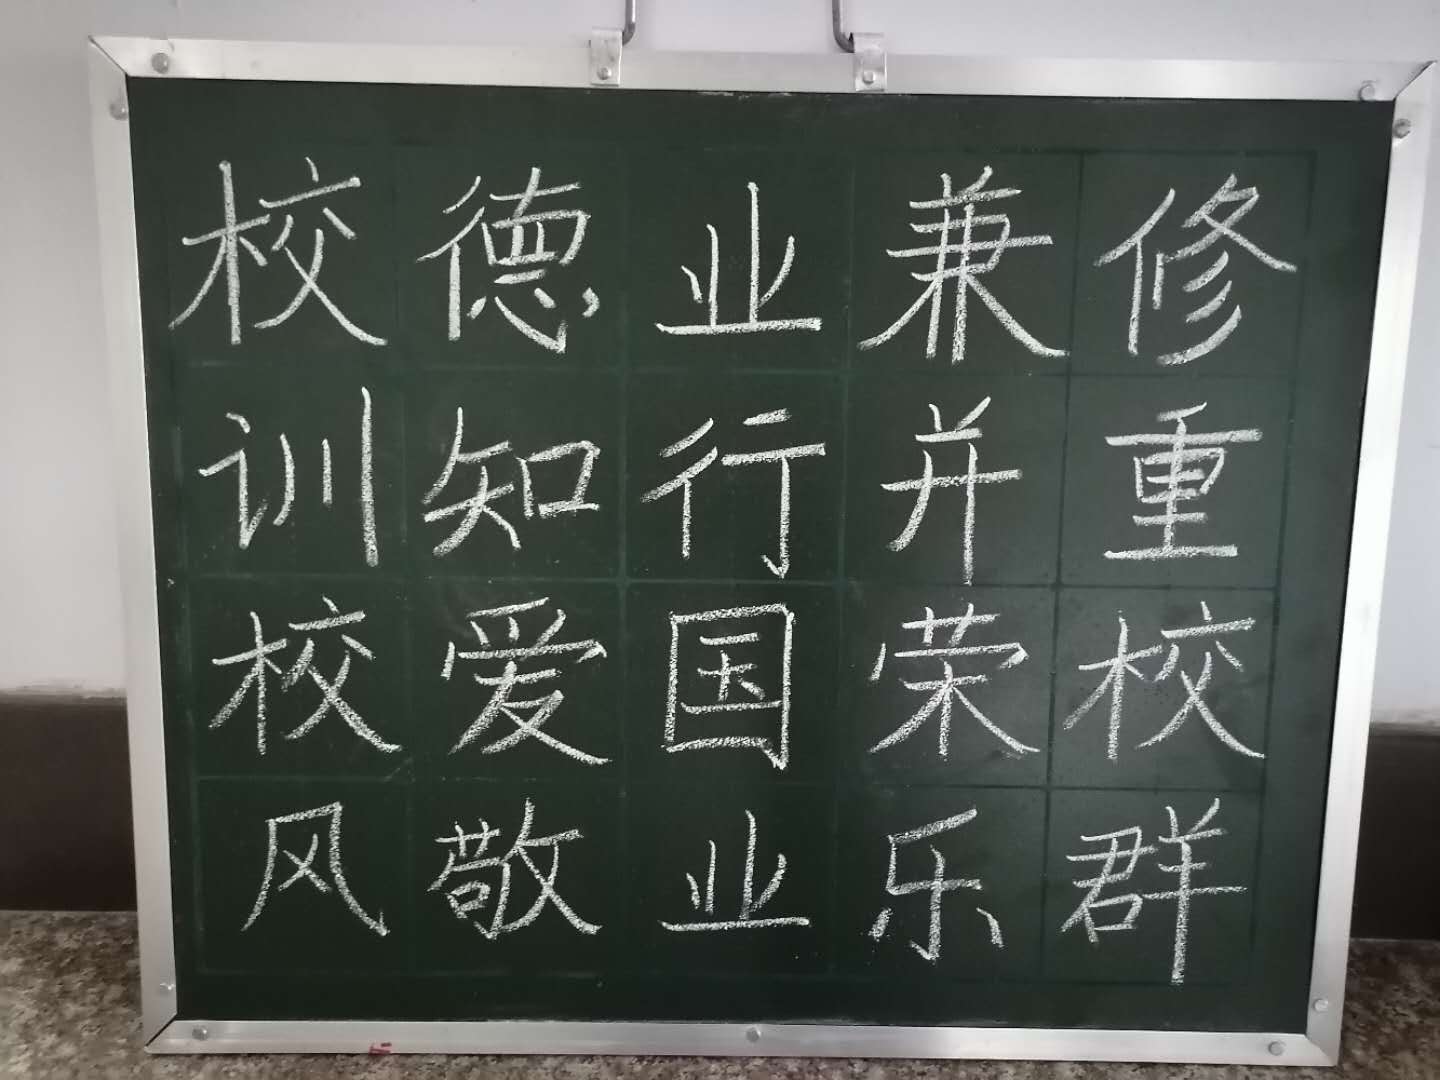 校德业兼修
训知行并重
校爱国荣校
风敬业乐群